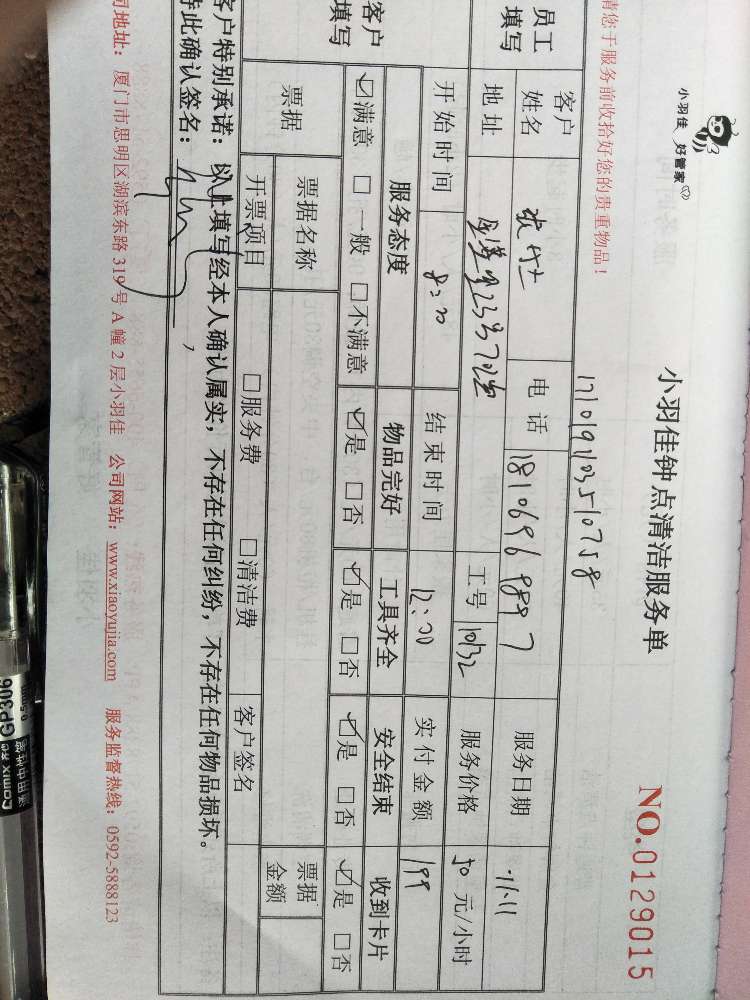 小羽佳 好管家
小羽佳钟点清洁服务单
NO.0129015
请您于服务前收拾好您的贵重物品！
171019103510758
员工填写
客户姓名
电话 18106969897
服务日期 11.11
地址
工号 1032
服务价格 50 元/小时
开始时间 8:20
结束时间 12:20
实付金额 199
客户填写
服务态度 物品完好 工具齐全 安全结束 收到卡片
☑满意 □一般 □不满意 ☑是 □否 ☑是 □否 ☑是 □否 ☑是 □否
票据
票据名称
票据金额
开票项目 □服务费 □清洁费 客户签名
客户特别承诺：以上填写经本人确认属实，不存在任何纠纷，不存在任何物品损坏。
特此确认签名：
司地址：厦门市思明区湖滨东路319号A幢2层小羽佳 公司网站：www.xiaoyujia.com 服务监督热线：0592-5888123
GP306
Comix